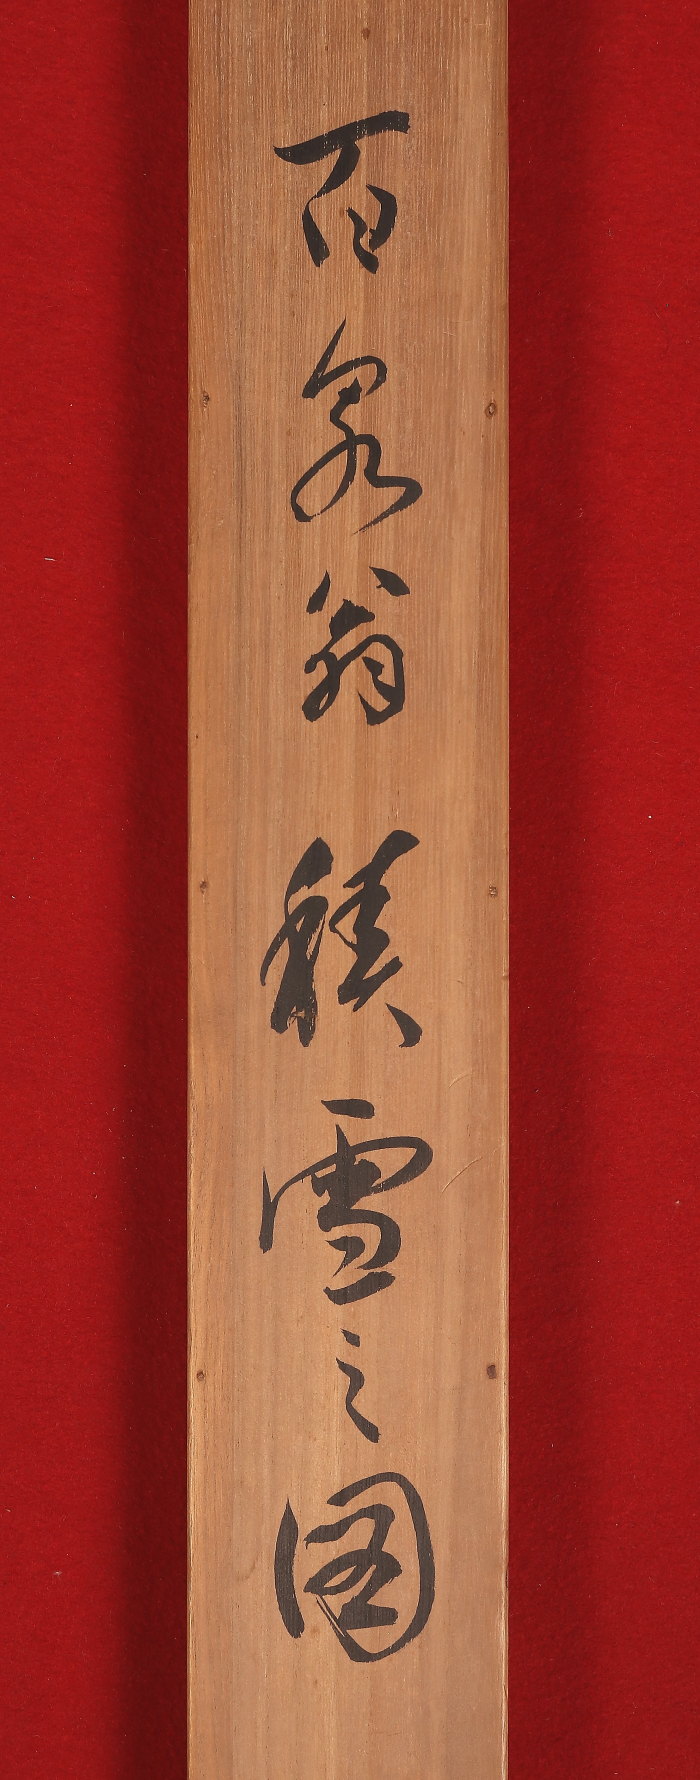 百泉翁積雪之図